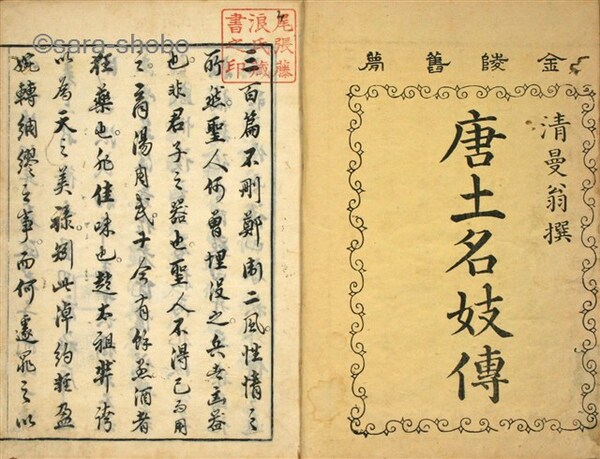 金陵舊夢
清曼翁撰
唐土名妓傳
尾張藤
浪氏藏
書之印
©sara-shobo
三百篇不刪鄭衛二風性情之
所然聖人何曾埋没之兵者凶器
也非君子之器也聖人不得已而用
之商湯周武于今有餘烈酒者
狂藥也非佳味也趙太祖誇
以為天之美祿矧此淖約輕盈
婉轉綢繆之事而何遽罪之以